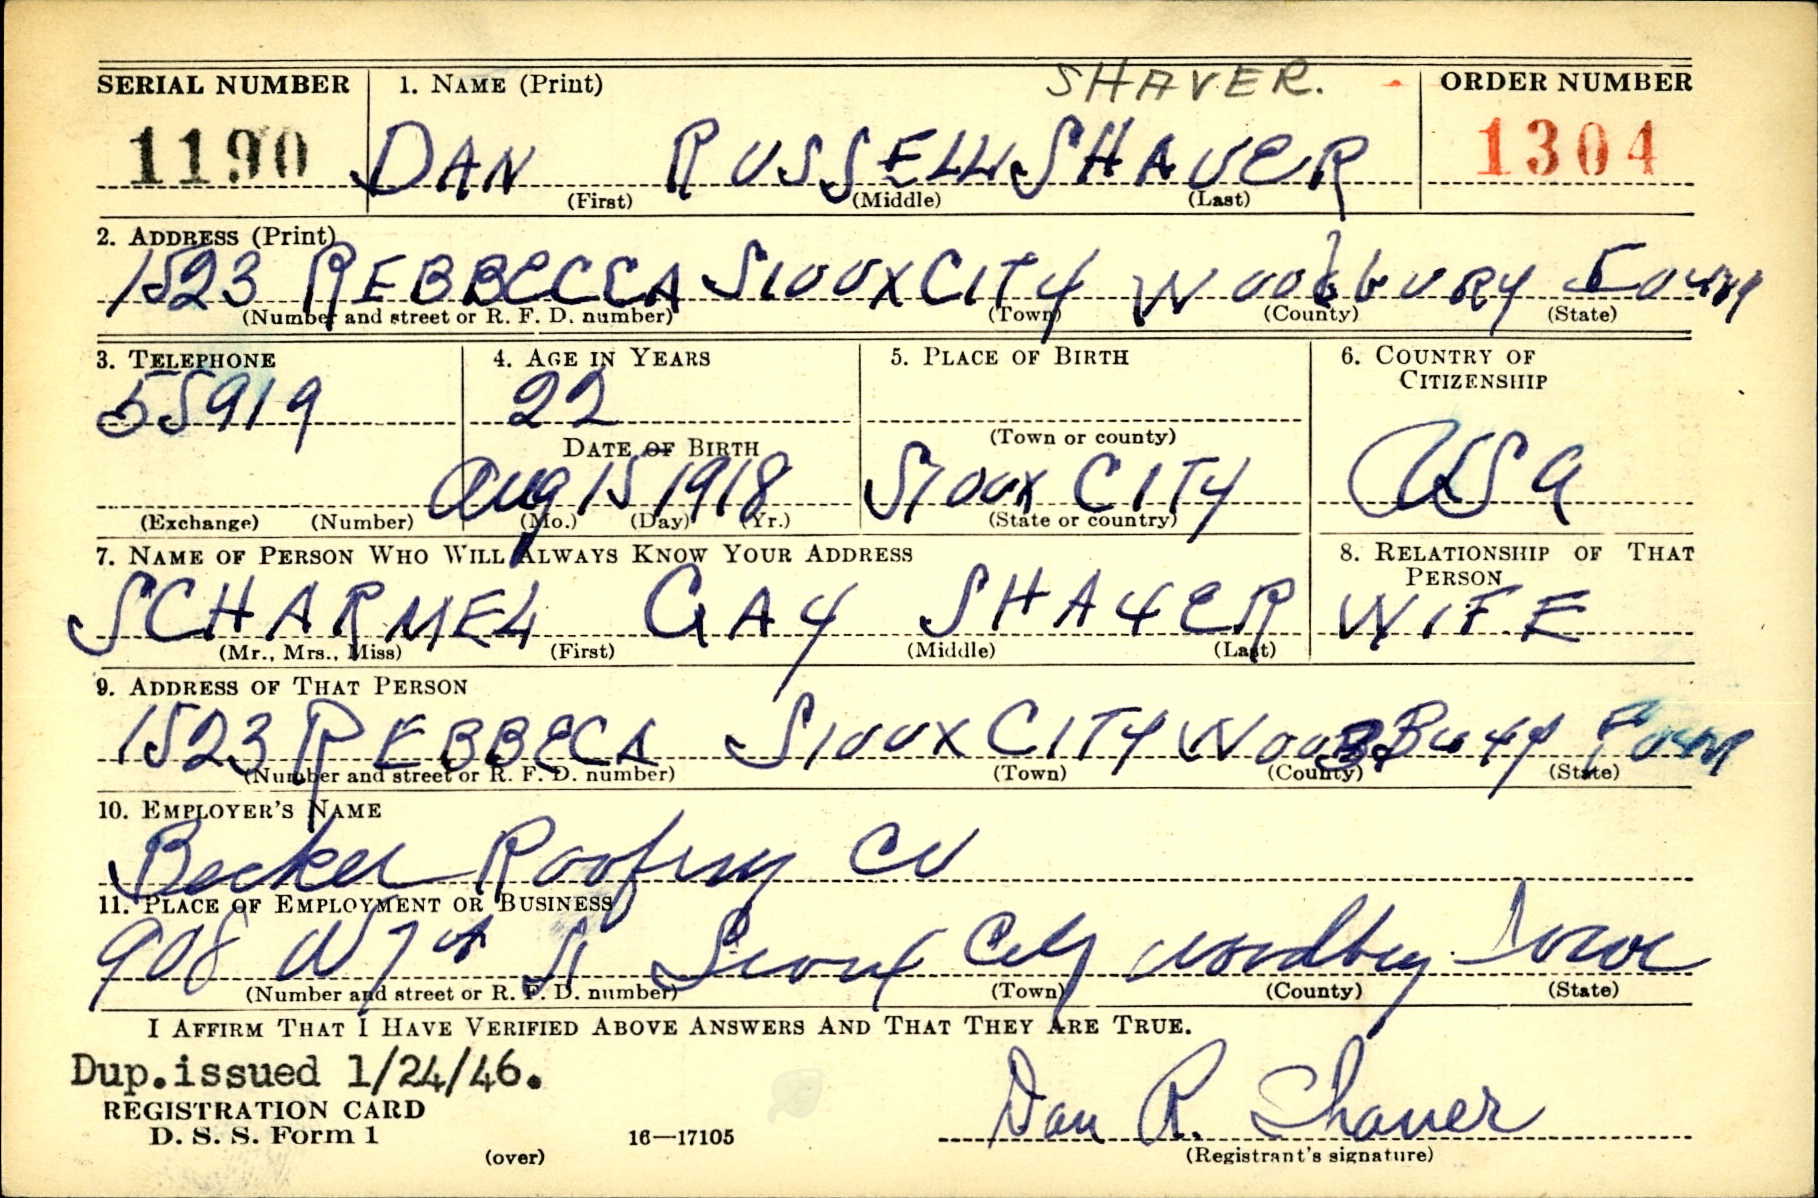 SHAVER.
SERIAL NUMBER 1. NAME (Print) ORDER NUMBER
1190 DAN RUSSELL SHAVER 1304
(First) (Middle) (Last)
2. ADDRESS (Print)
1523 REBBECCA SIOUX CITY Woodbury Iowa
(Number and street or R. F. D. number) (Town) (County) (State)
3. TELEPHONE 4. AGE IN YEARS 5. PLACE OF BIRTH 6. COUNTRY OF CITIZENSHIP
55919 22
DATE OF BIRTH (Town or county)
Aug 15 1918 SIOUX CITY USA
(Exchange) (Number) (Mo.) (Day) (Yr.) (State or country)
7. NAME OF PERSON WHO WILL ALWAYS KNOW YOUR ADDRESS 8. RELATIONSHIP OF THAT PERSON
SCHARMEL GAY SHAVER WIFE
(Mr., Mrs., Miss) (First) (Middle) (Last)
9. ADDRESS OF THAT PERSON
1523 REBBECA SIOUX CITY WOODBURY Iowa
(Number and street or R. F. D. number) (Town) (County) (State)
10. EMPLOYER'S NAME
Becker Roofing Co
11. PLACE OF EMPLOYMENT OR BUSINESS
908 W 7th St Sioux City Woodbury Iowa
(Number and street or R. F. D. number) (Town) (County) (State)
I AFFIRM THAT I HAVE VERIFIED ABOVE ANSWERS AND THAT THEY ARE TRUE.
Dup.issued 1/24/46.
REGISTRATION CARD
D. S. S. Form 1 16—17105 Dan R. Shaver
(over) (Registrant's signature)